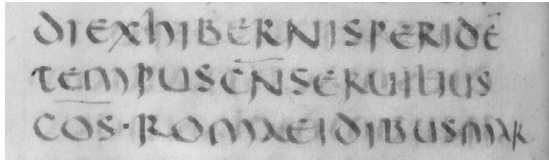 DIEXHIBERNISPERIDĒ
TEMPUSC̅N̅SERUILIUS
C̅O̅S̅·ROMAEIDIBUSMAR